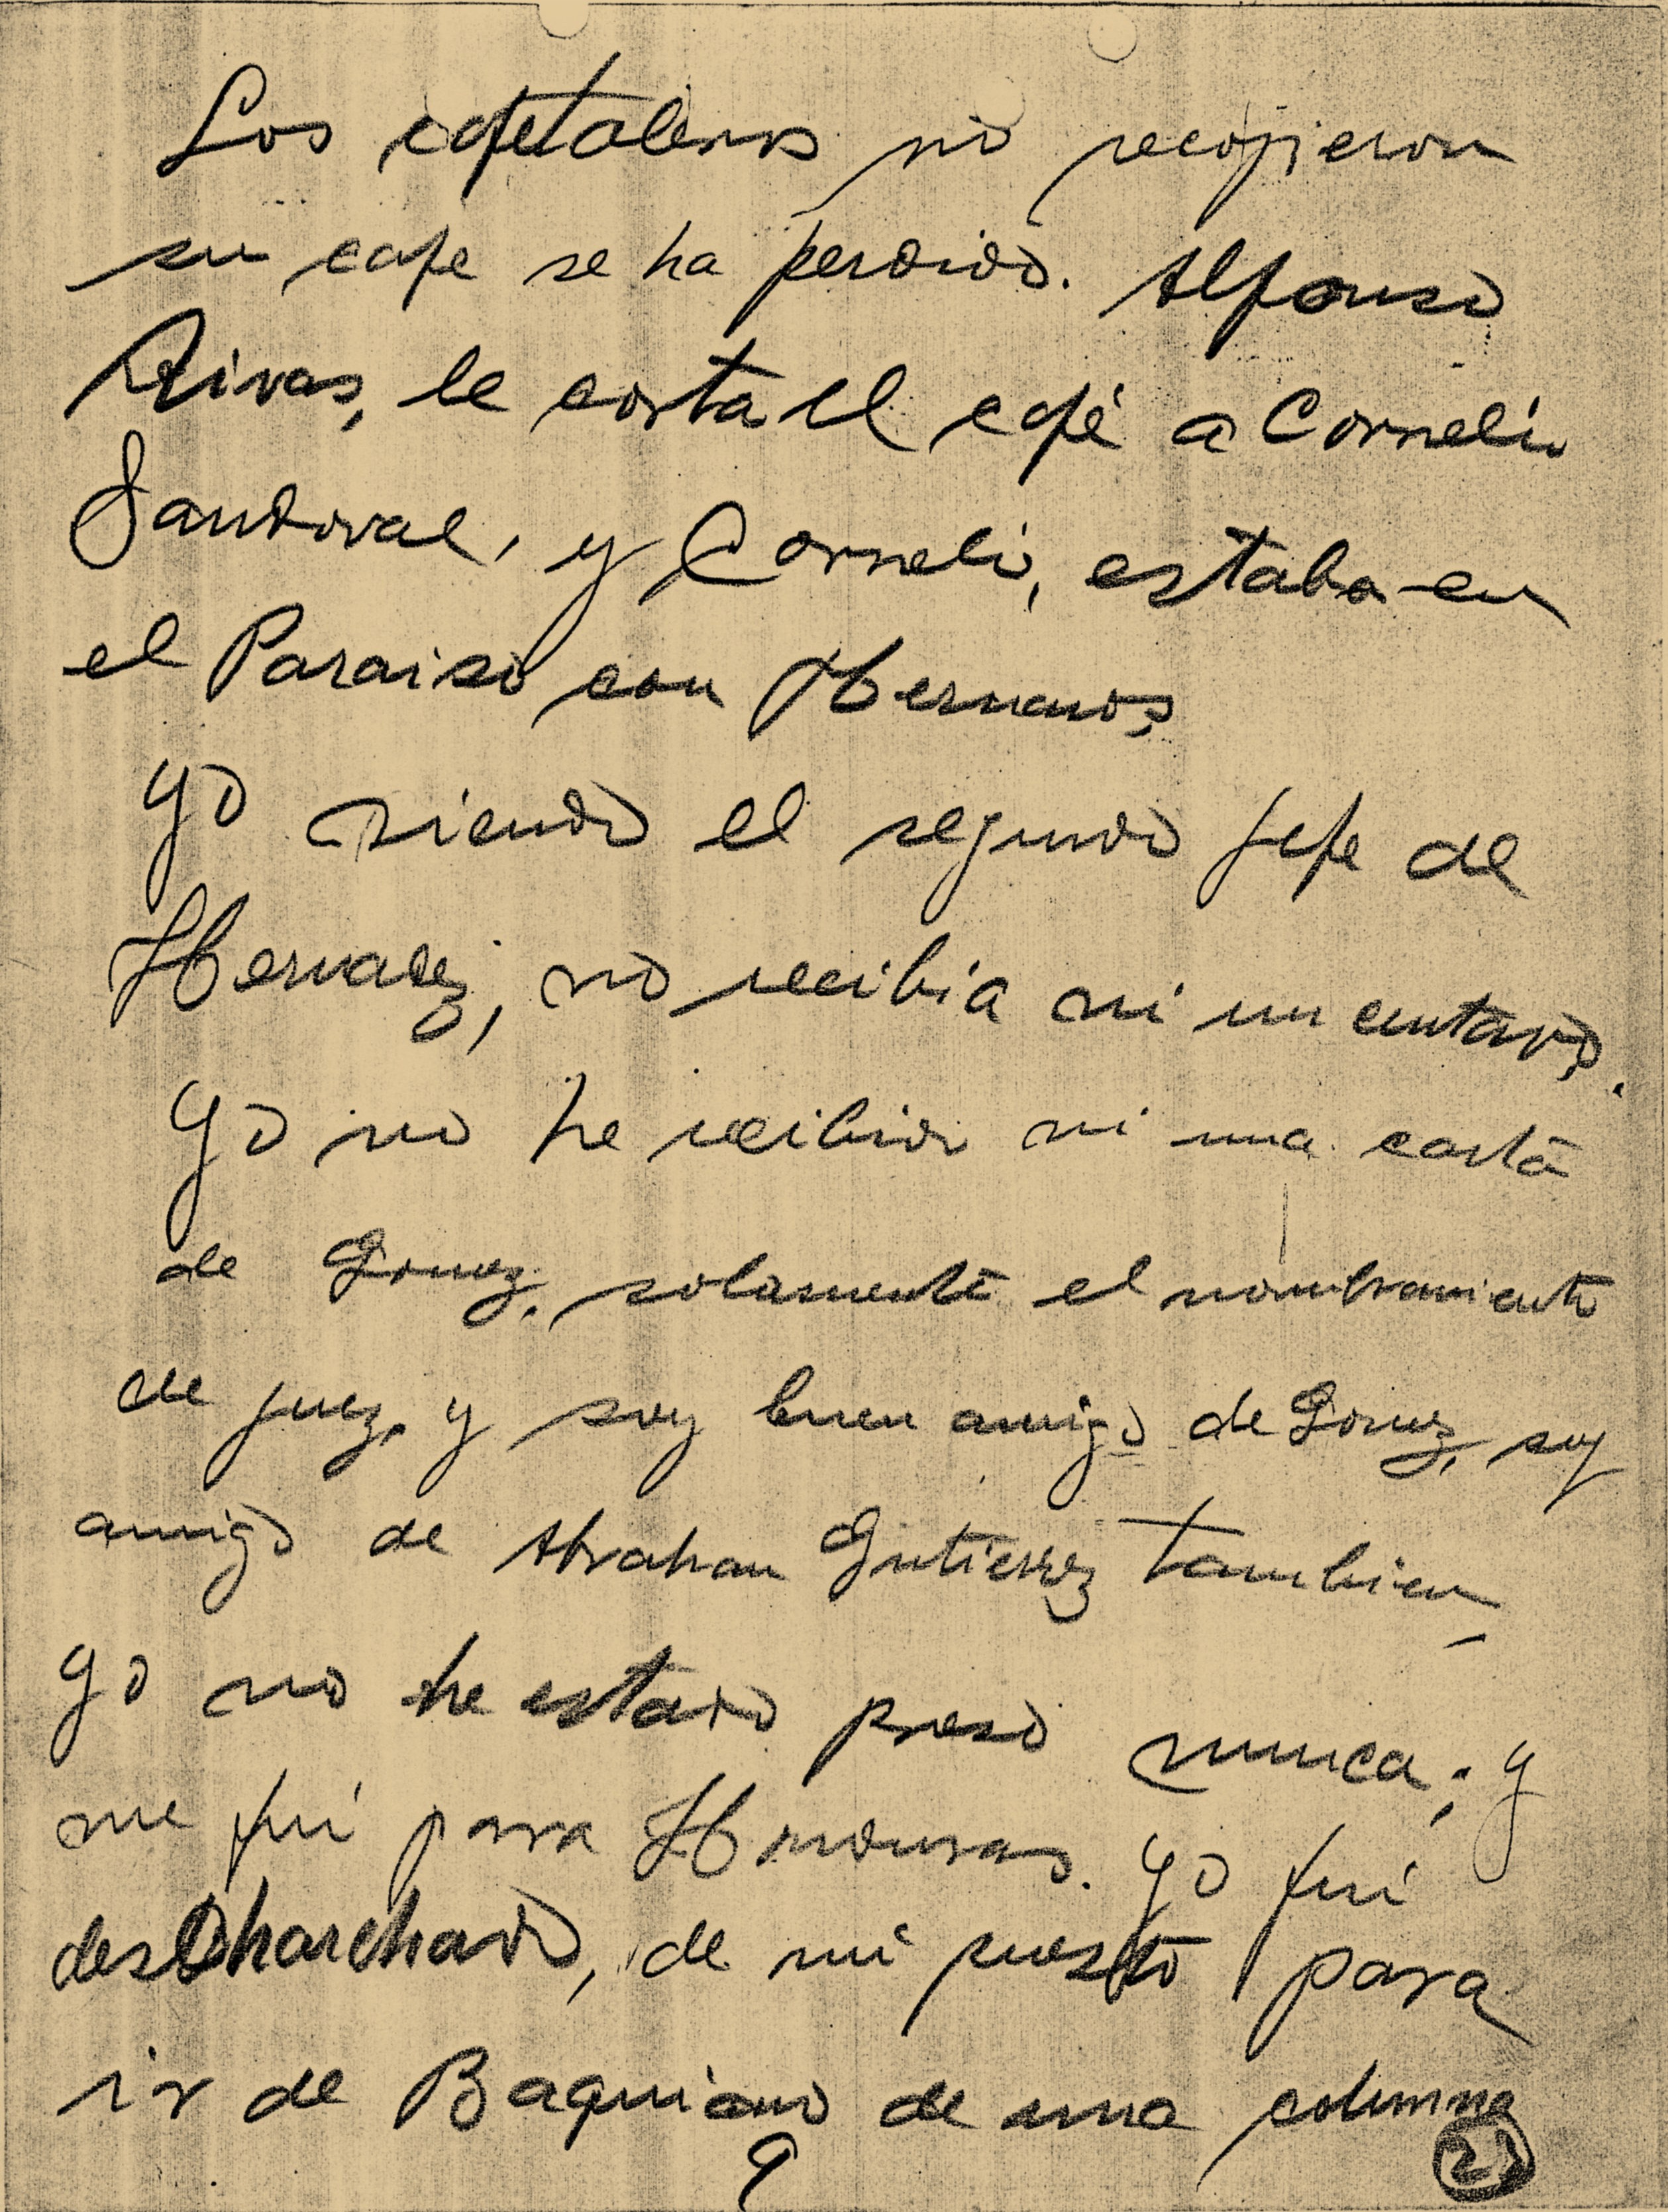 Los cafetaleros no recojieron
su cafe se ha perdido. Alfonso
Rivas, le corta el café a Cornelio
Sandoval, y Cornelio, estaba en
el Paraiso con Hernandez
Yo siendo el segundo jefe de
Hernandez, no recibia ni un centavo.
Yo no he recibido ni una carta
de Gomez, solamente el nombramiento
de juez, y soy buen amigo de Gomez, soy
amigo de Abraham Gutierrez tambien
Yo no he estado preso nunca; y
me fuí para Honduras. Yo fuí
desChanchado, de mi puesto para
ir de Baquiano de una columna
9 21